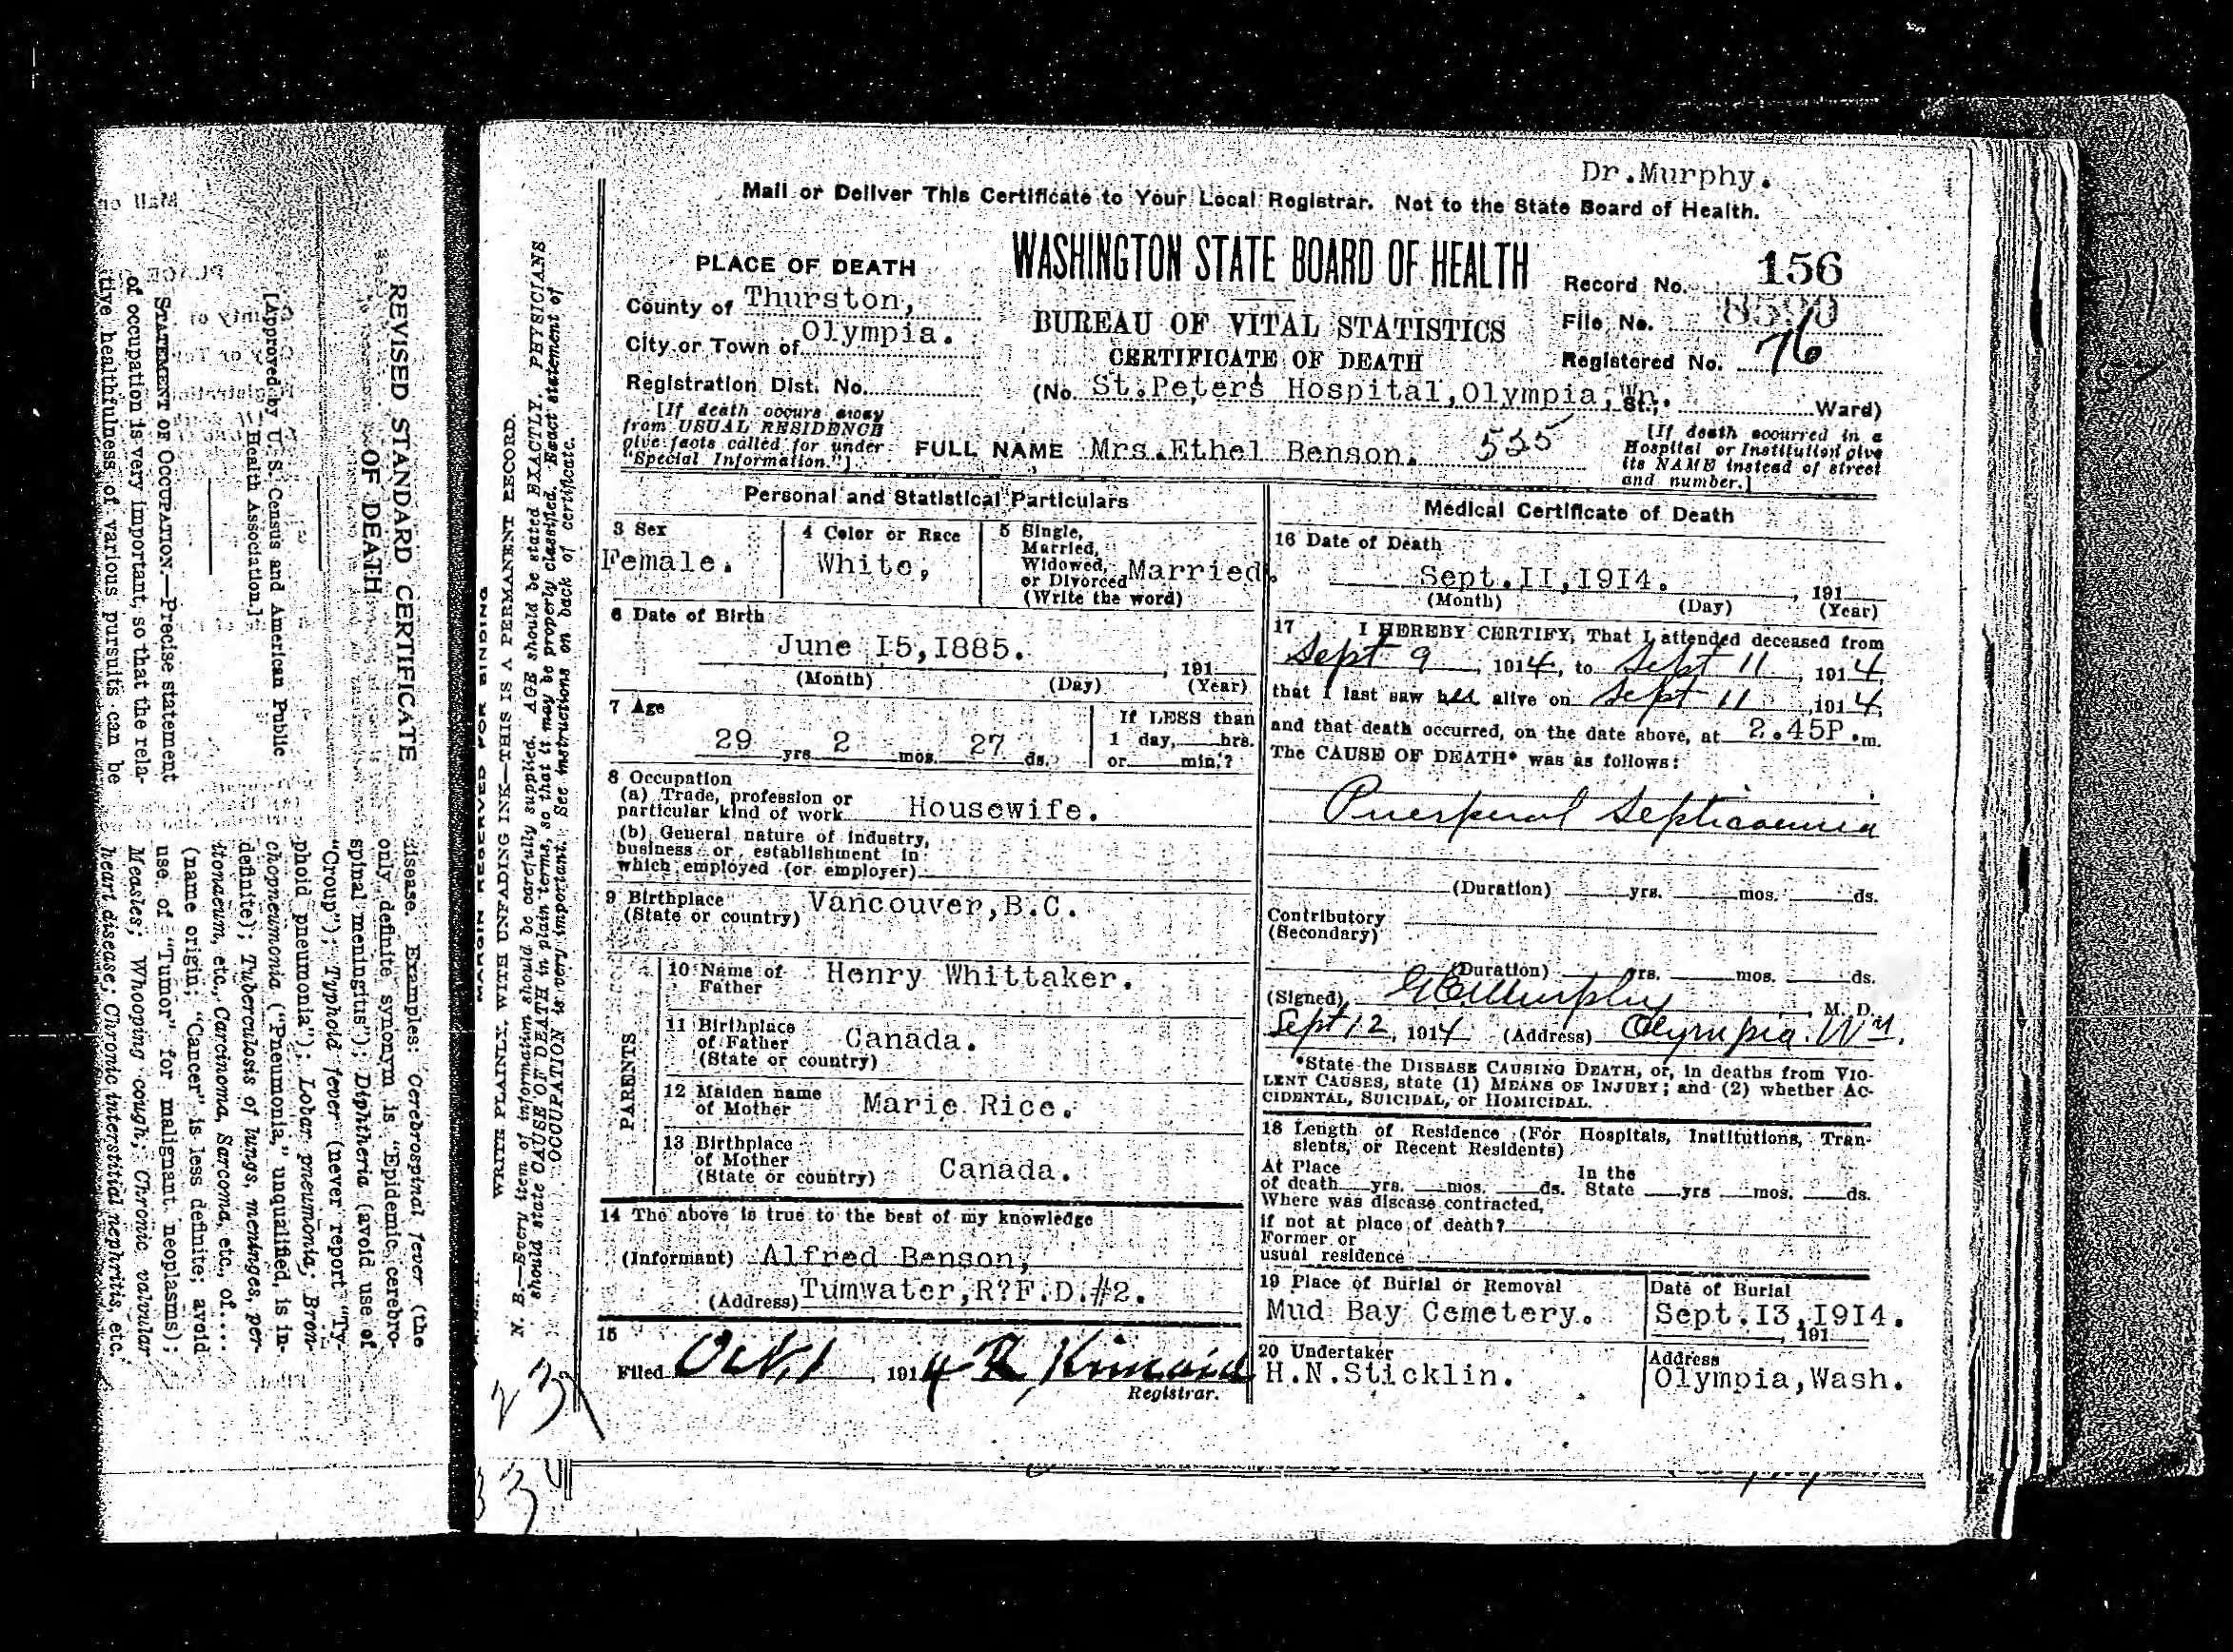 Dr.Murphy.
Mail or Deliver This Certificate to Your Local Registrar. Not to the State Board of Health.
PLACE OF DEATH
County of Thurston,
City or Town of Olympia.
Registration Dist. No.
[If death occurs away
from USUAL RESIDENCE
give facts called for under
"Special Information."]
WASHINGTON STATE BOARD OF HEALTH
BUREAU OF VITAL STATISTICS
CERTIFICATE OF DEATH
Record No. 156
File No.
Registered No. 76
(No. St.Peters Hospital,Olympia, Wn. St., Ward)
FULL NAME Mrs.Ethel Benson. 535
[If death occurred in a
Hospital or Institution give
its NAME instead of street
and number.]
Personal and Statistical Particulars
3 Sex
Female.
4 Color or Race
White,
5 Single,
Married,
Widowed,
or Divorced Married.
(Write the word)
6 Date of Birth
June I5,I885.
, 191
(Month) (Day) (Year)
7 Age
29 yrs 2 mos. 27 ds.
If LESS than
1 day, hrs.
or min.?
8 Occupation
(a) Trade, profession or
particular kind of work Housewife.
(b) General nature of industry,
business or establishment in
which employed (or employer)
9 Birthplace
(State or country) Vancouver,B.C.
PARENTS
10 Name of
Father Henry Whittaker.
11 Birthplace
of Father
(State or country) Canada.
12 Maiden name
of Mother Marie Rice.
13 Birthplace
of Mother
(State or country) Canada.
14 The above is true to the best of my knowledge
(Informant) Alfred Benson,
(Address) Tumwater,R?F.D.#2.
15
Filed Oct 1, 1914
Registrar.
Medical Certificate of Death
16 Date of Death
Sept.II,I9I4. , 191
(Month) (Day) (Year)
17 I HEREBY CERTIFY, That I attended deceased from
Sept 9, 1914, to Sept 11, 1914,
that I last saw her alive on Sept 11, 1914,
and that death occurred, on the date above, at 2.45P.m.
The CAUSE OF DEATH* was as follows:
Puerperal Septicaemia
(Duration) yrs. mos. ds.
Contributory
(Secondary)
(Duration) yrs. mos. ds.
(Signed) Murphy, M. D.
Sept 12, 1914 (Address) Olympia Wn.
*State the DISEASE CAUSING DEATH, or, in deaths from VIO-
LENT CAUSES, state (1) MEANS OF INJURY; and (2) whether AC-
CIDENTAL, SUICIDAL, or HOMICIDAL.
18 Length of Residence (For Hospitals, Institutions, Tran-
sients, or Recent Residents)
At Place
of death yrs. mos. ds.
In the
State yrs mos. ds.
Where was disease contracted,
if not at place of death?
Former or
usual residence
19 Place of Burial or Removal
Mud Bay Cemetery.
Date of Burial
Sept.I3,I9I4.
, 191
20 Undertaker
H.N.Sticklin.
Address
Olympia,Wash.
MARGIN RESERVED FOR BINDING
WRITE PLAINLY, WITH UNFADING INK—THIS IS A PERMANENT RECORD.
N. B.—Every item of information should be carefully supplied. AGE should be stated EXACTLY. PHYSICIANS
should state CAUSE OF DEATH in plain terms, so that it may be properly classified. Exact statement of
OCCUPATION is very important. See instructions on back of certificate.
REVISED STANDARD CERTIFICATE
OF DEATH
[Approved by U. S. Census and American Public
Health Association.]
STATEMENT OF OCCUPATION.—Precise statement
of occupation is very important, so that the rela-
tive healthfulness of various pursuits can be
disease. Examples: Cerebrospinal fever (the
only definite synonym is "Epidemic cerebro-
spinal meningitus"); Diphtheria (avoid use of
"Croup"); Typhoid fever (never report "Ty-
phoid pneumonia"); Lobar pneumonia; Bron-
chopneumonia ("Pneumonia," unqualified, is in-
definite); Tuberculosis of lungs, meninges, per-
itonaeum, etc., Carcinoma, Sarcoma, etc., of....
(name origin; "Cancer" is less definite; avoid
use of "Tumor" for malignant neoplasms);
Measles; Whooping cough; Chronic valvular
heart disease; Chronic interstitial nephritis, etc.